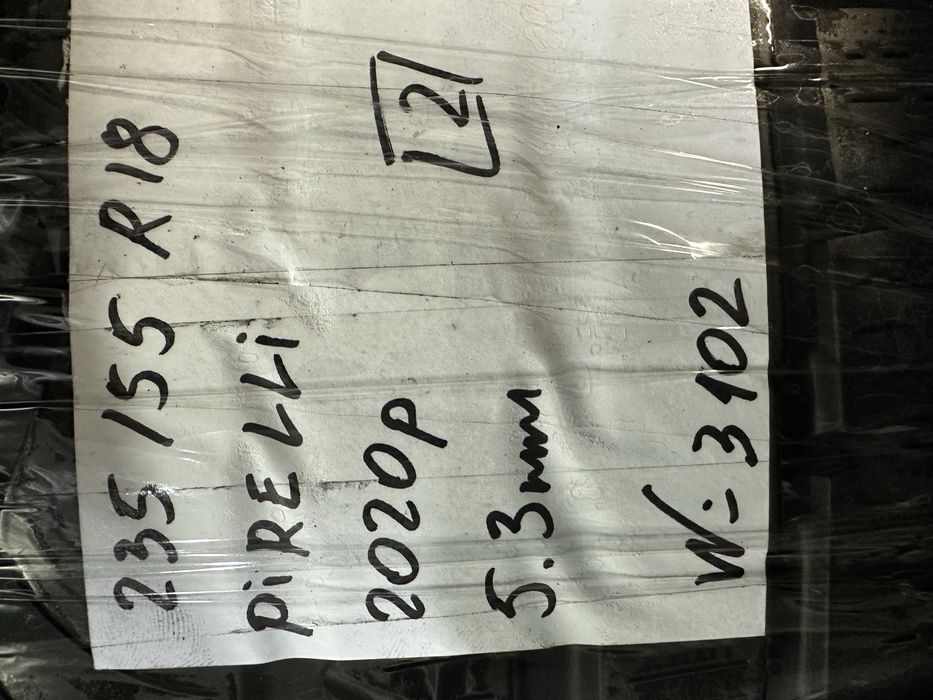 235/55 R18
PiRELLi
2020р
[2]
5.3mm
№: 3102